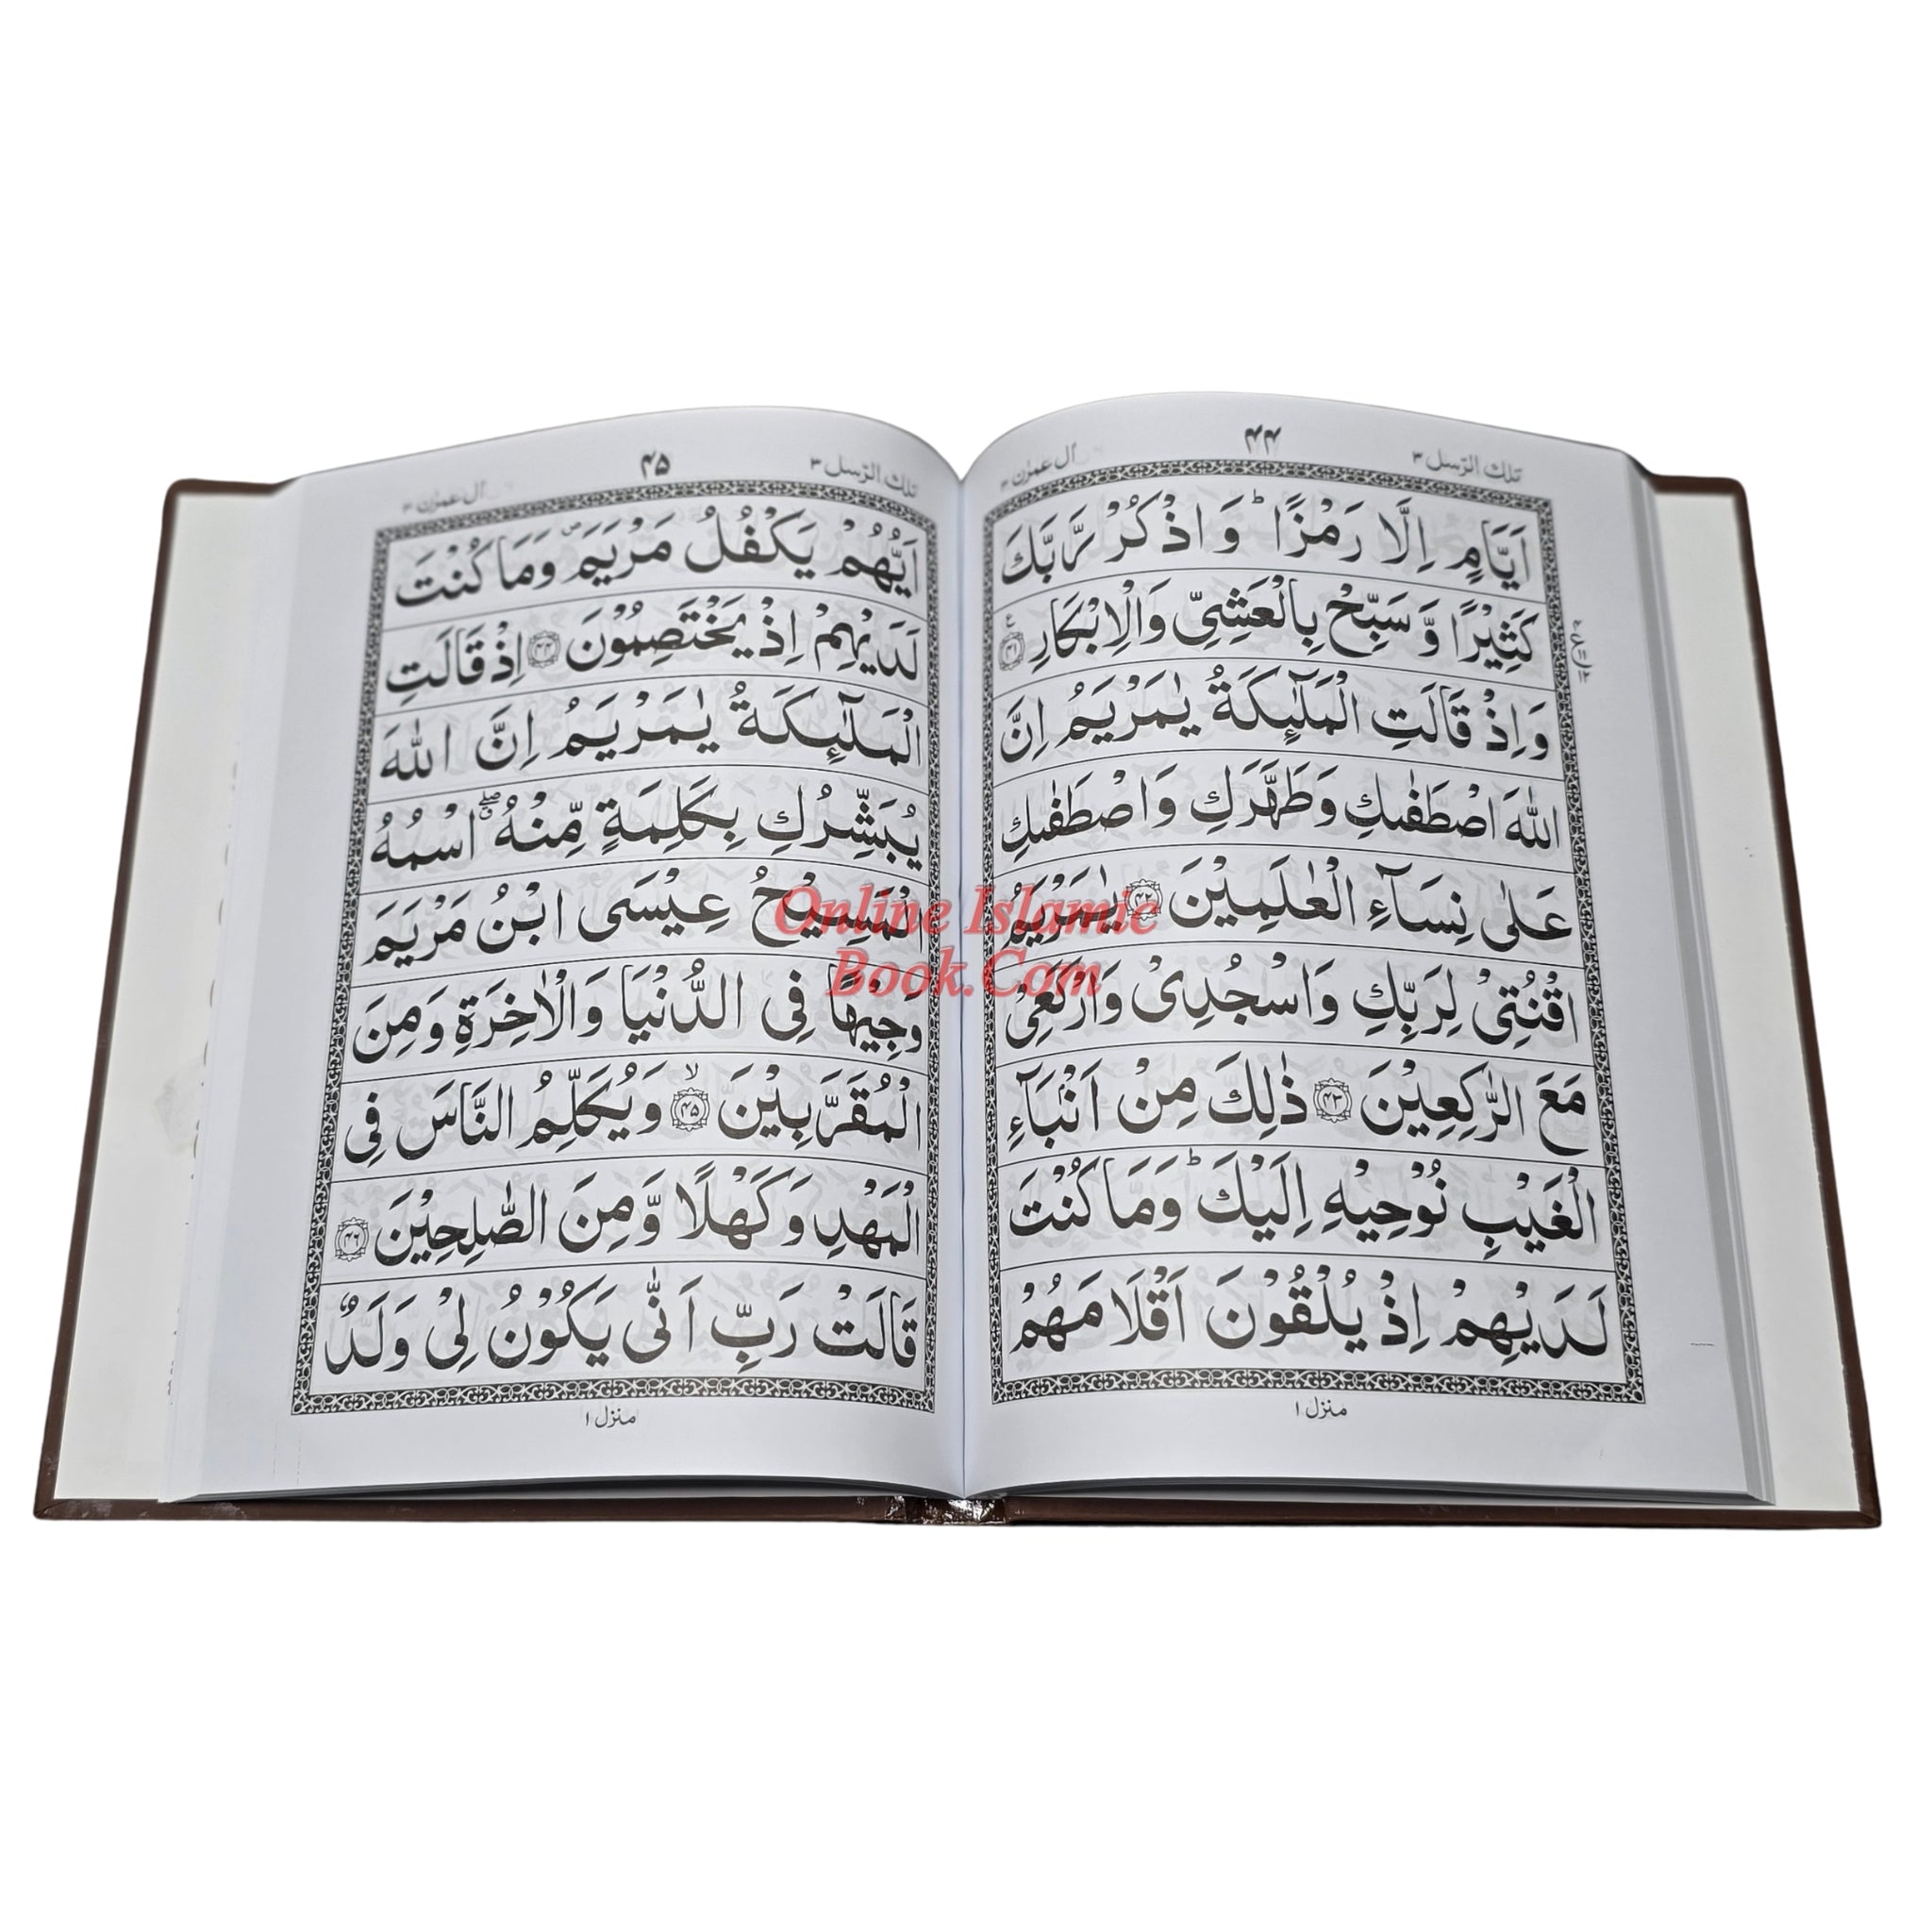 تلك الرسل ٣
۴۴
آل عمرٰن ٣
اَيَّامٍ اِلَّا رَمْزًا ؕ وَ اذْكُرْ رَّبَّكَ
كَثِيْرًا وَّ سَبِّحْ بِالْعَشِيِّ وَالْاِبْكَارِ ۴۱
ع ١١ ١٢
وَاِذْ قَالَتِ الْمَلٰٓئِكَةُ يٰمَرْيَمُ اِنَّ
اللّٰهَ اصْطَفٰىكِ وَطَهَّرَكِ وَاصْطَفٰىكِ
عَلٰى نِسَآءِ الْعٰلَمِيْنَ ۴۲ يٰمَرْيَمُ
اقْنُتِيْ لِرَبِّكِ وَاسْجُدِيْ وَارْكَعِيْ
مَعَ الرّٰكِعِيْنَ ۴۳ ذٰلِكَ مِنْ اَنْۢبَآءِ
الْغَيْبِ نُوْحِيْهِ اِلَيْكَ ؕ وَمَا كُنْتَ
لَدَيْهِمْ اِذْ يُلْقُوْنَ اَقْلَامَهُمْ
منزل ١
تلك الرسل ٣
۴۵
آل عمرٰن ٣
اَيُّهُمْ يَكْفُلُ مَرْيَمَ ۪ وَمَا كُنْتَ
لَدَيْهِمْ اِذْ يَخْتَصِمُوْنَ ۴۴ اِذْ قَالَتِ
الْمَلٰٓئِكَةُ يٰمَرْيَمُ اِنَّ اللّٰهَ
يُبَشِّرُكِ بِكَلِمَةٍ مِّنْهُ ۖ اسْمُهُ
الْمَسِيْحُ عِيْسَى ابْنُ مَرْيَمَ
وَجِيْهًا فِي الدُّنْيَا وَالْاٰخِرَةِ وَمِنَ
الْمُقَرَّبِيْنَ ۙ ۴۵ وَيُكَلِّمُ النَّاسَ فِي
الْمَهْدِ وَكَهْلًا وَّمِنَ الصّٰلِحِيْنَ ۴۶
قَالَتْ رَبِّ اَنّٰى يَكُوْنُ لِيْ وَلَدٌ
منزل ١
Online Islamic
Book.Com